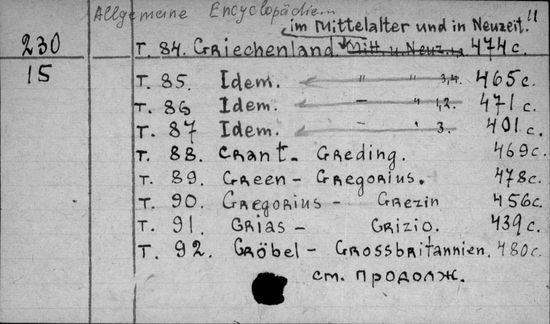 Allgemeine Encyclopädie
im Mittelalter und in Neuzeit."
230 Т. 84. Griechenland Mitt. u. Neuz. 474 с.
15 Т. 85. Idem. " " 3,4. 465 с.
Т. 86 Idem. — " 1,2. 471 с.
Т. 87 Idem. — " 3. 401 с.
Т. 88. Crant - Greding. 469 с.
Т. 89. Green - Gregorius. 478 с.
Т. 90. Gregorius - Grezin 456 с.
Т. 91. Grias - Grizio. 439 с.
Т. 92. Gröbel - Grossbritannien. 480 с.
см. продолж.